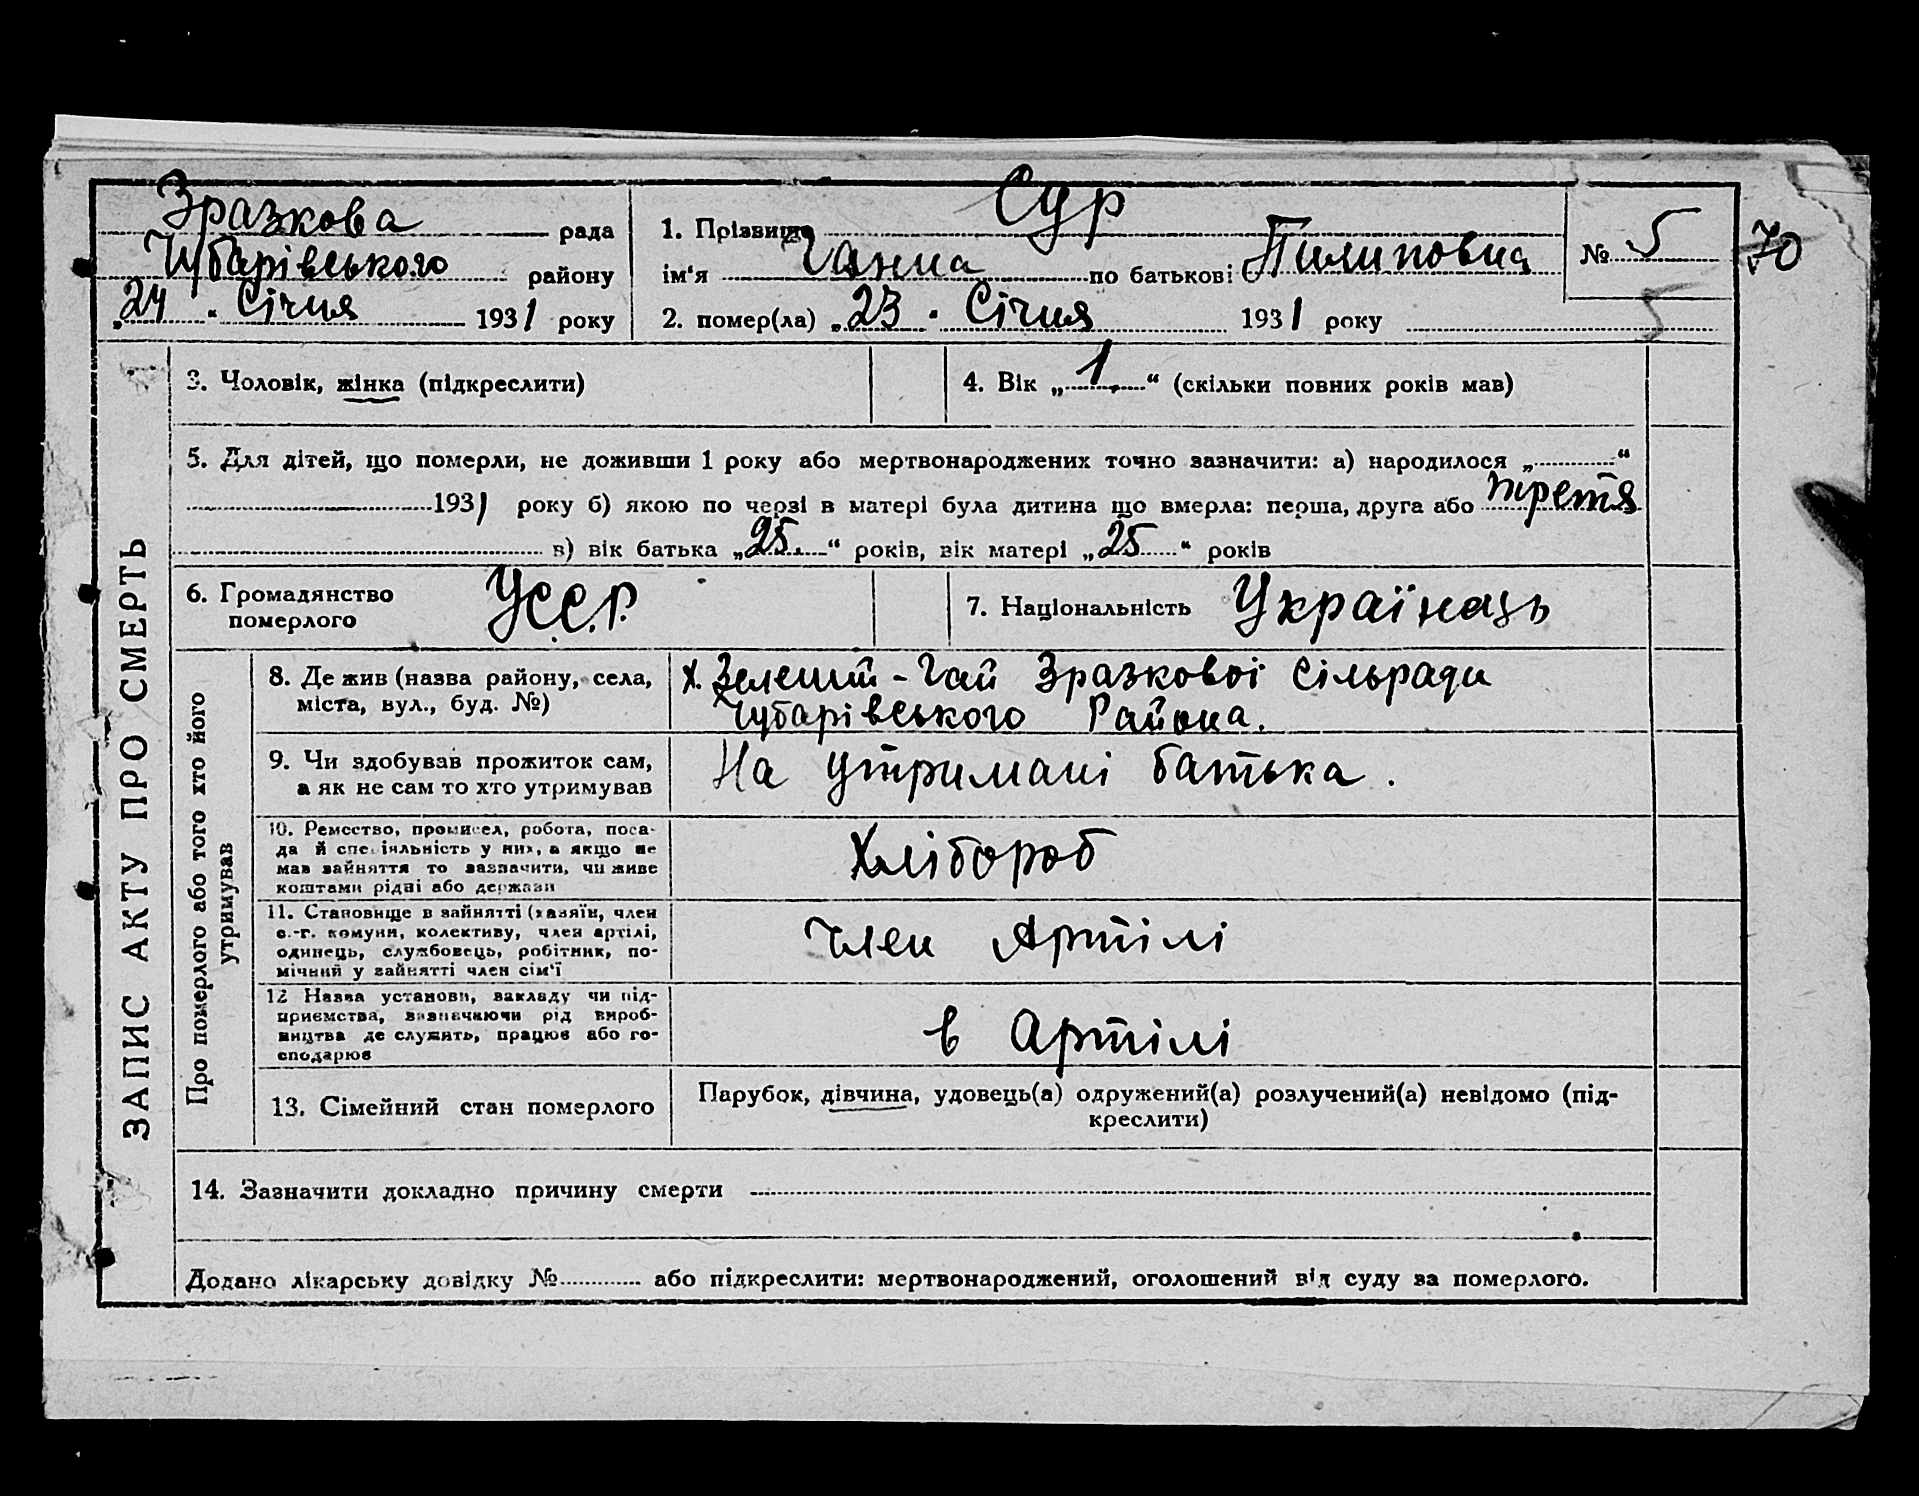 Зразкова рада
Чубарівського району
„24“ Січня 1931 року
1. Прізвище Сур
ім'я Ганна по батькові Пилиповна
№ 5
70
2. помер(ла) „23. Січня 1931 року
ЗАПИС АКТУ ПРО СМЕРТЬ
3. Чоловік, жінка (підкреслити)
4. Вік „1.“ (скільки повних років мав)
5. Для дітей, що померли, не доживши 1 року або мертвонароджених точно зазначити: а) народилося „ “
1931 року б) якою по черзі в матері була дитина що вмерла: перша, друга або третя
в) вік батька „25.“ років, вік матері „25“ років
6. Громадянство
померлого
УССР.
7. Національність Українець
Про померлого або того хто його
утримував
8. Де жив (назва району, села,
міста, вул., буд. №)
х. Зелений-Гай Зразковоі сільради
Чубарівського Района.
9. Чи здобував прожиток сам,
а як не сам то хто утримував
На утримані батька.
10. Ремество, промисел, робота, поса-
да й спеціяльність у них, а якщо не
мав зайняття то зазначити, чи живе
коштами рідні або держави
Хлібороб
11. Становище в зайнятті (хазяїн, член
с.-г. комуни, колективу, член артілі,
одинець, службовець, робітник, по-
мічний у зайнятті член сім'ї
Член Артілі
12 Назва установи, закладу чи під-
приємства, визначаючи рід вироб-
ництва де служить, працює або го-
сподарює
в Артілі
13. Сімейний стан померлого
Парубок, дівчина, удовець(а) одружений(а) розлучений(а) невідомо (під-
креслити)
14. Зазначити докладно причину смерти
Додано лікарську довідку № або підкреслити: мертвонароджений, оголошений від суду за померлого.